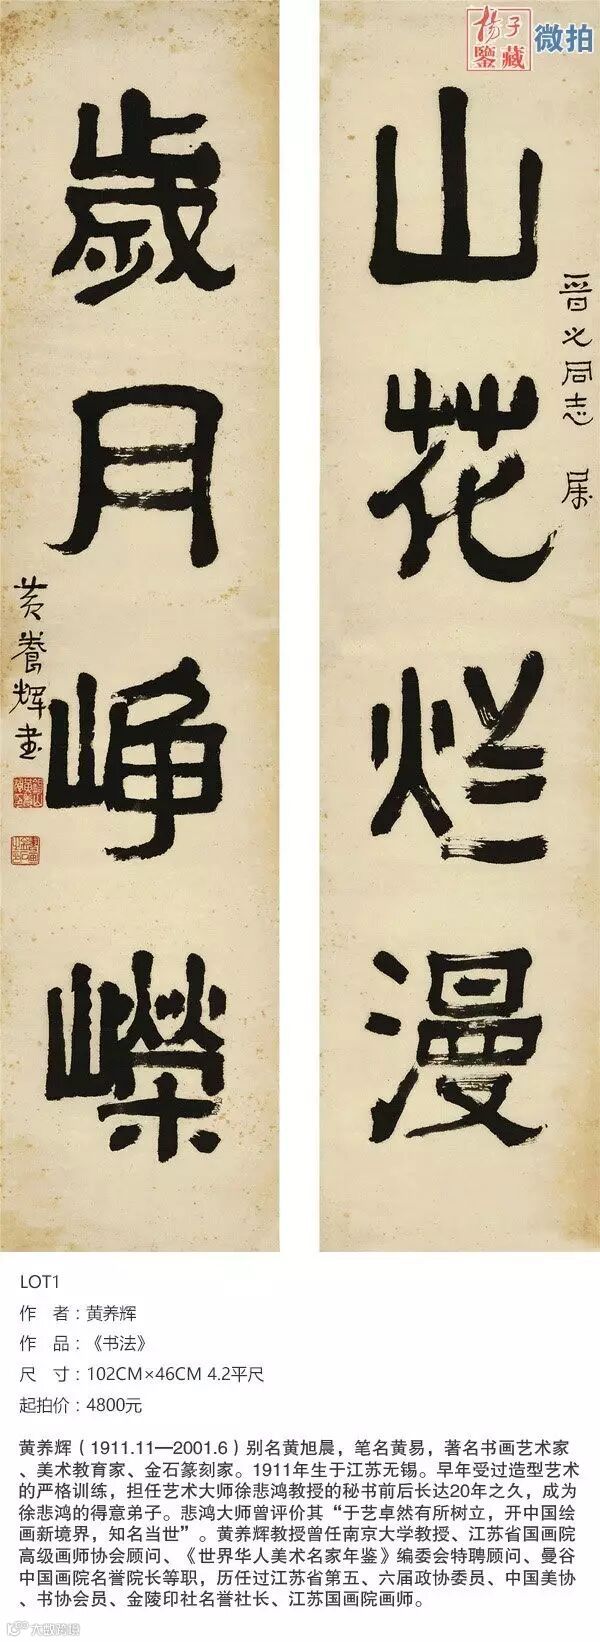 杨子
鉴藏
微拍
山花烂漫
晋之同志 属
歲月峥嶸
黄養辉书
LOT1
作 者：黄养辉
作 品：《书法》
尺 寸：102CM×46CM 4.2平尺
起拍价：4800元
黄养辉（1911.11—2001.6）别名黄旭晨，笔名黄易，著名书画艺术家
、美术教育家、金石篆刻家。1911年生于江苏无锡。早年受过造型艺术
的严格训练，担任艺术大师徐悲鸿教授的秘书前后长达20年之久，成为
徐悲鸿的得意弟子。悲鸿大师曾评价其“于艺卓然有所树立，开中国绘
画新境界，知名当世”。黄养辉教授曾任南京大学教授、江苏省国画院
高级画师协会顾问、《世界华人美术名家年鉴》编委会特聘顾问、曼谷
中国画院名誉院长等职，历任过江苏省第五、六届政协委员、中国美协
、书协会员、金陵印社名誉社长、江苏国画院画师。